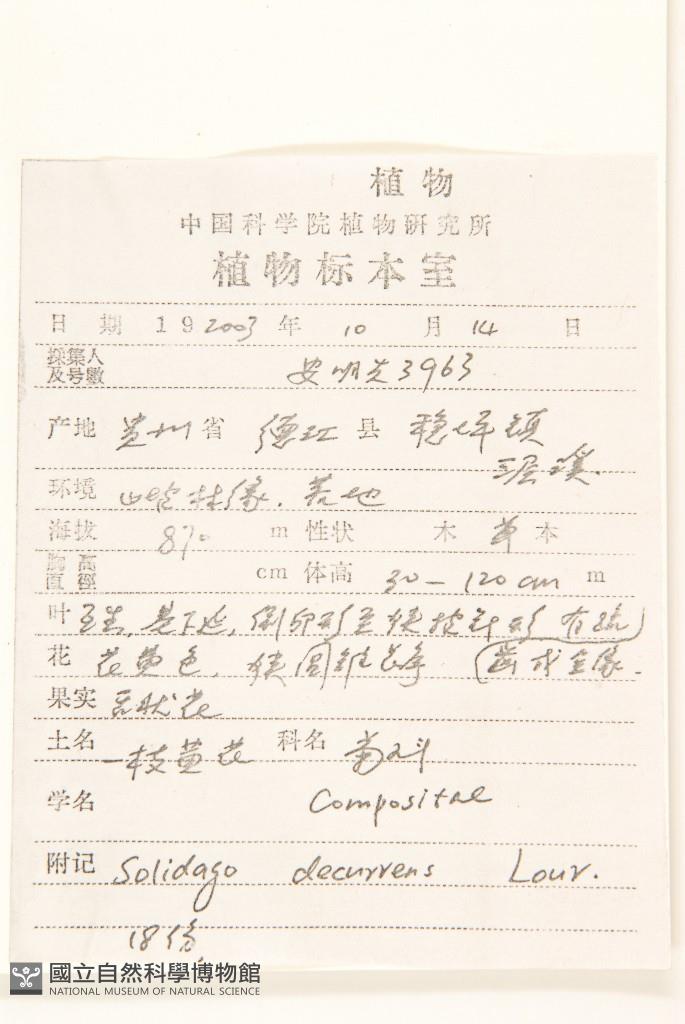 植物
中国科学院植物研究所
植物标本室
日期 19 2003 年 10 月 14 日
採集人及号數 安明先 3963
产地 贵州 省 德江 县 稳坪镇
溪
环境 山地林缘. 草地
海拔 870 m 性状 木 草 本
胸高直徑 cm 体高 30-120 cm m
叶 互生, 基下延, 倒卵形至狭披针形 有疏
花 花黄色, 狭圆锥花序 齿或全缘.
果实 舌状花
土名 一枝黄花 科名 菊科
学名 Compositae
附记 Solidago decurrens Lour.
18份
國立自然科學博物館
NATIONAL MUSEUM OF NATURAL SCIENCE